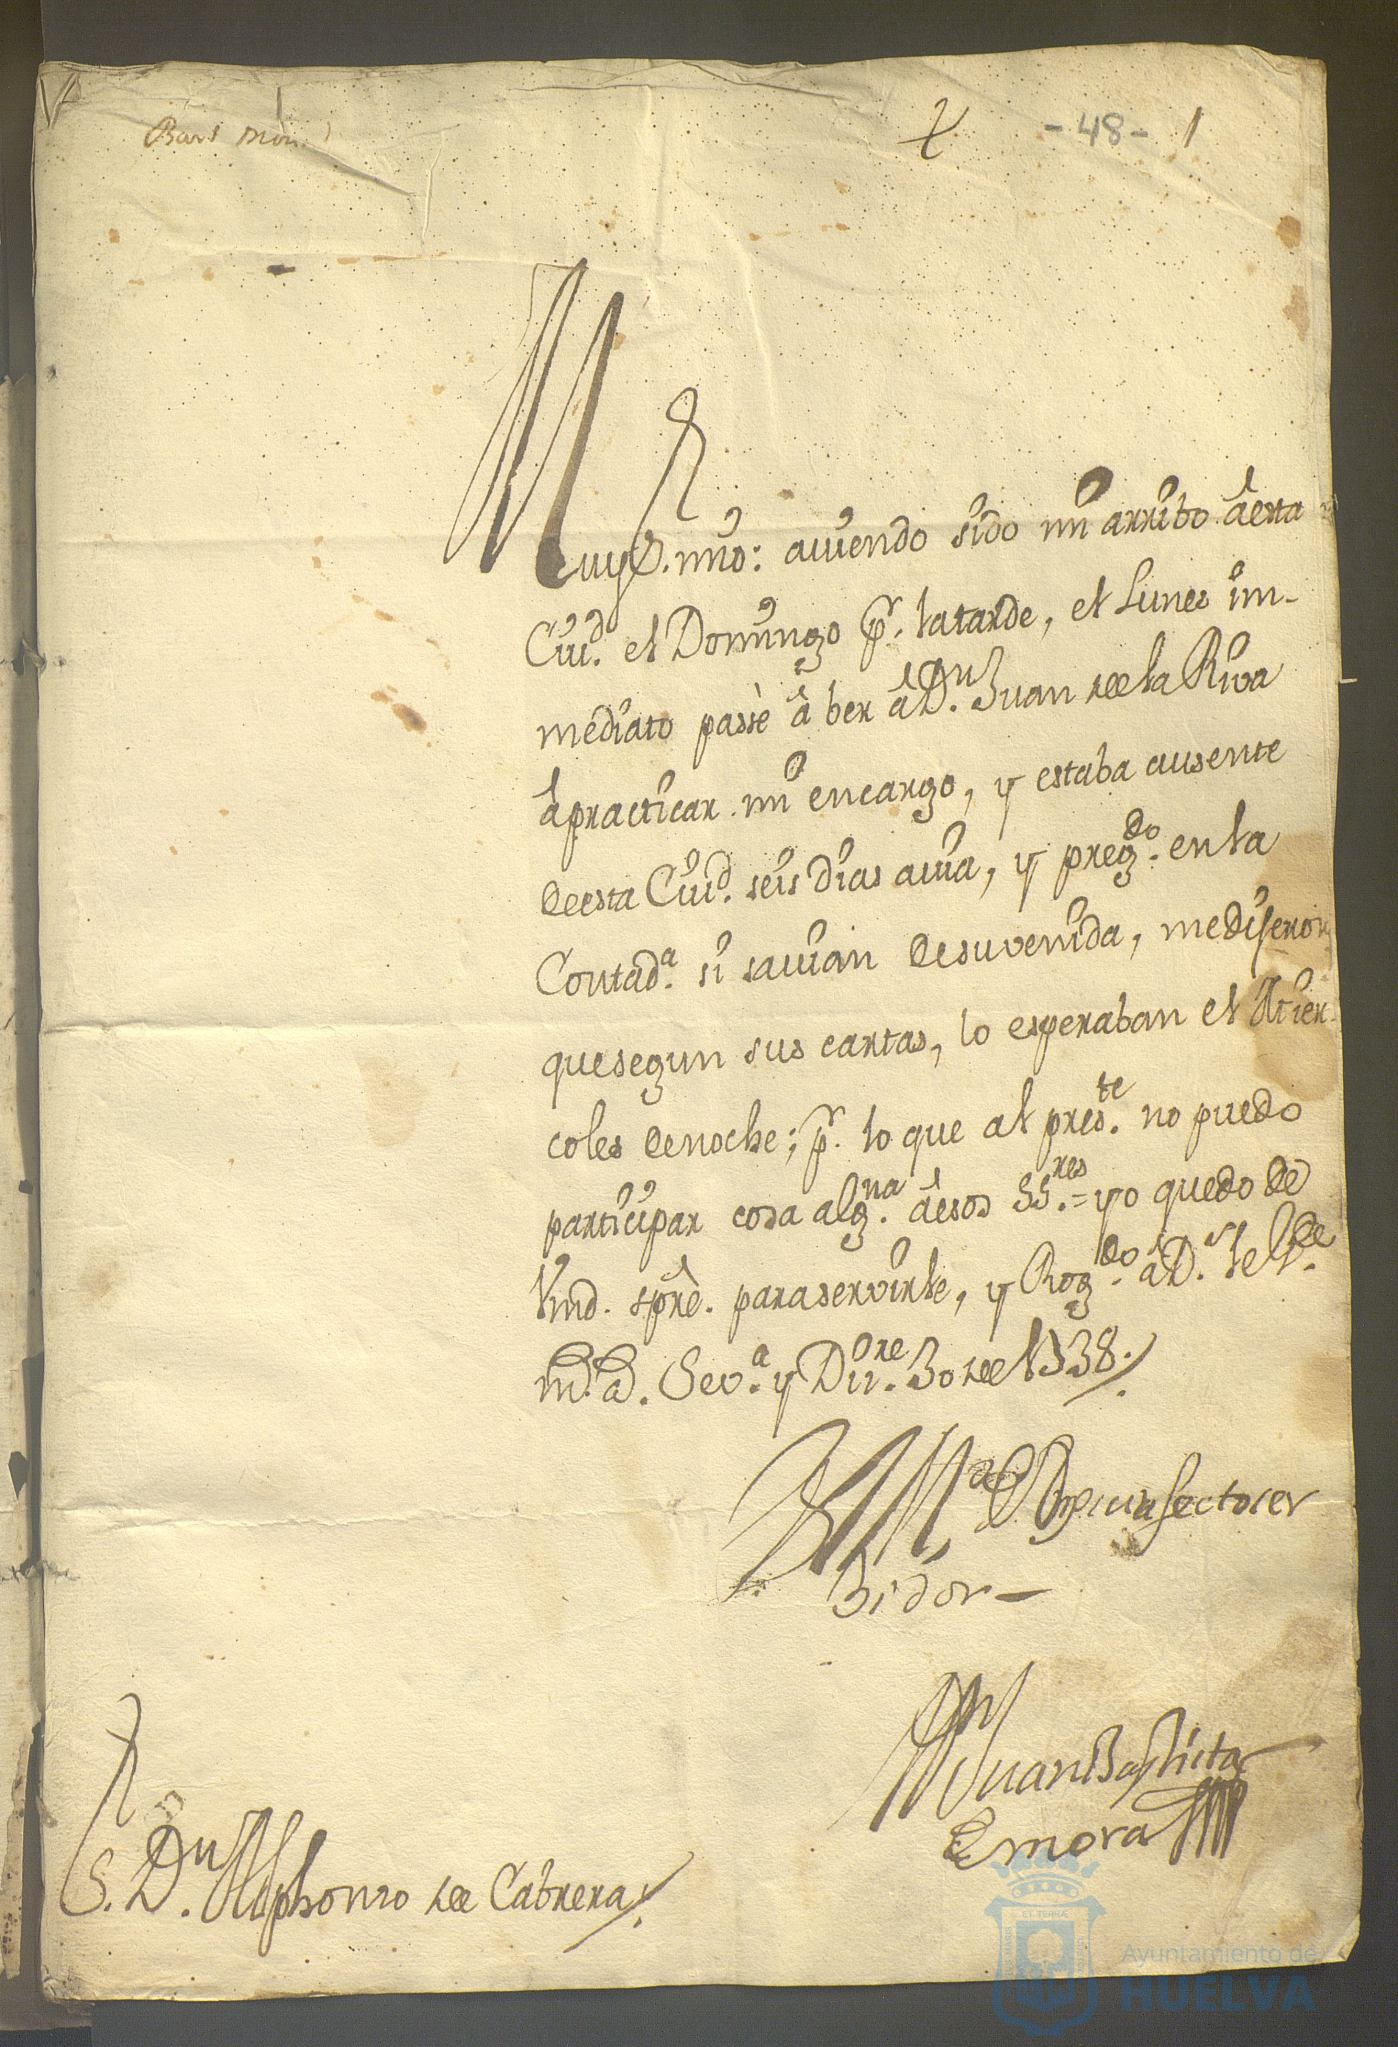 - 48 - 1
Muy S.r mio: aviendo sido mi arribo à esta
Ciu.d el Domingo p.r la tarde, el Lunes im-
mediato passè â ber â D.n Juan de la Riva
â practicar mi encargo, y estaba ausente
de esta Ciu.d seis dias avia, y preg.do en la
Contad.a si savian de su venida, me dijeron
que segun sus cartas, lo esperaban el Mier-
coles de noche; p.r lo que al pres.te no puedo
participar cosa alg.na â esos SS.res = yo quedo de
Vmd. spre. para servirle, y Rog.do â D.s le G.de
m.s a.s Sev.a y Dix.re 30 de 1738.
B L M.o de Vm su afecto ser
bidor
Juan Baptista
Emora
S.r D.n Alphonso de Cabrera
Ayuntamiento de
HUELVA